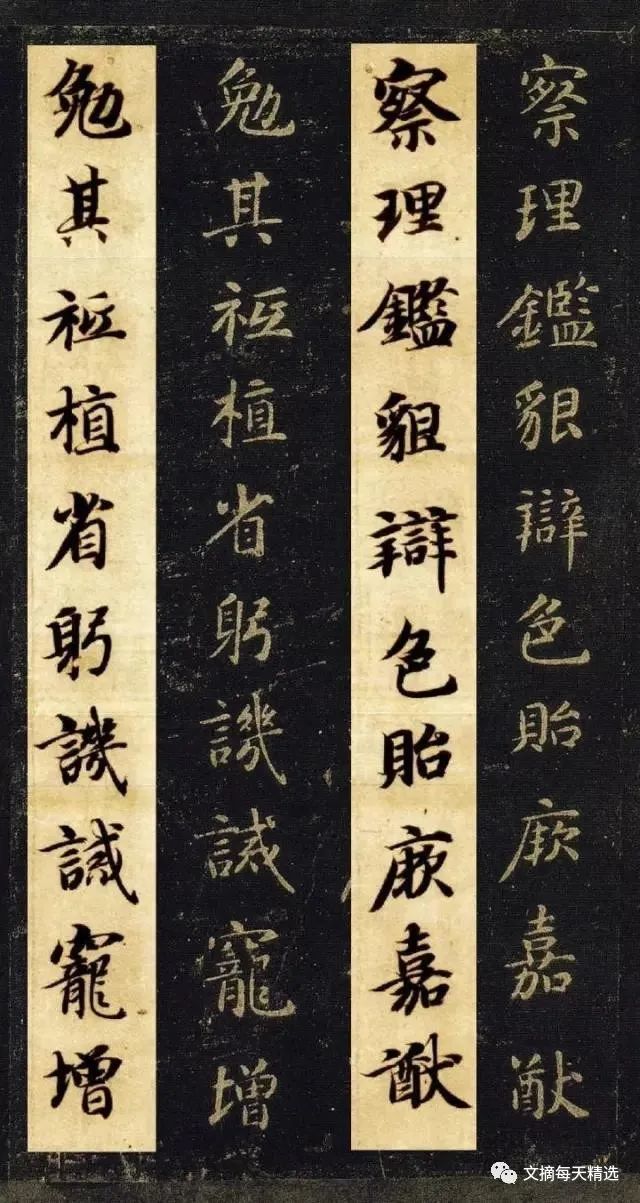 察理鑑貇辯色貽厥嘉猷
察理鑑貇辯色貽厥嘉猷
勉其祗植省躬譏誡寵增
勉其祗植省躬譏誡寵增
文摘每天精选